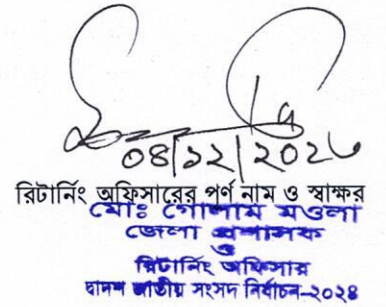 ০৪/১২/২০২৩
রিটার্নিং অফিসারের পূর্ণ নাম ও স্বাক্ষর
মোঃ গোলাম মওলা
জেলা প্রশাসক
ও
রিটার্নিং অফিসার
দ্বাদশ জাতীয় সংসদ নির্বাচন-২০২৪